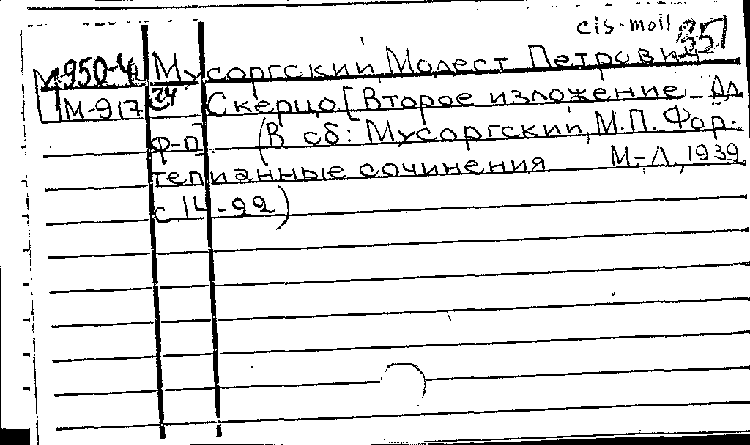 cis-moll 357
М950-4 Мусоргский, Модест Петрович
Ц М-917 24 Скерцо [Второе изложение. Дл
ф-п (В сб: Мусоргский, М.П. Фор-
тепианные сочинения М-Л, 1939
с 14-22)